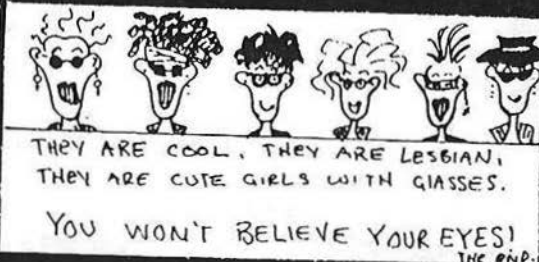 THEY ARE COOL, THEY ARE LESBIAN,
THEY ARE CUTE GIRLS WITH GLASSES.
YOU WON'T BELIEVE YOUR EYES!
THE END.